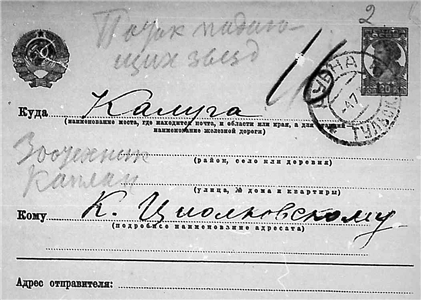 2
Поток падаю-
щих звезд
Куда Калуга
(наименование места, где находится почта, и области или края, а для станций
наименование железной дороги)
(район, село или деревня)
Каплан
(улица, № дома и квартиры)
Кому К. Циолковскому
(подробное наименование адресата)
Адрес отправителя: